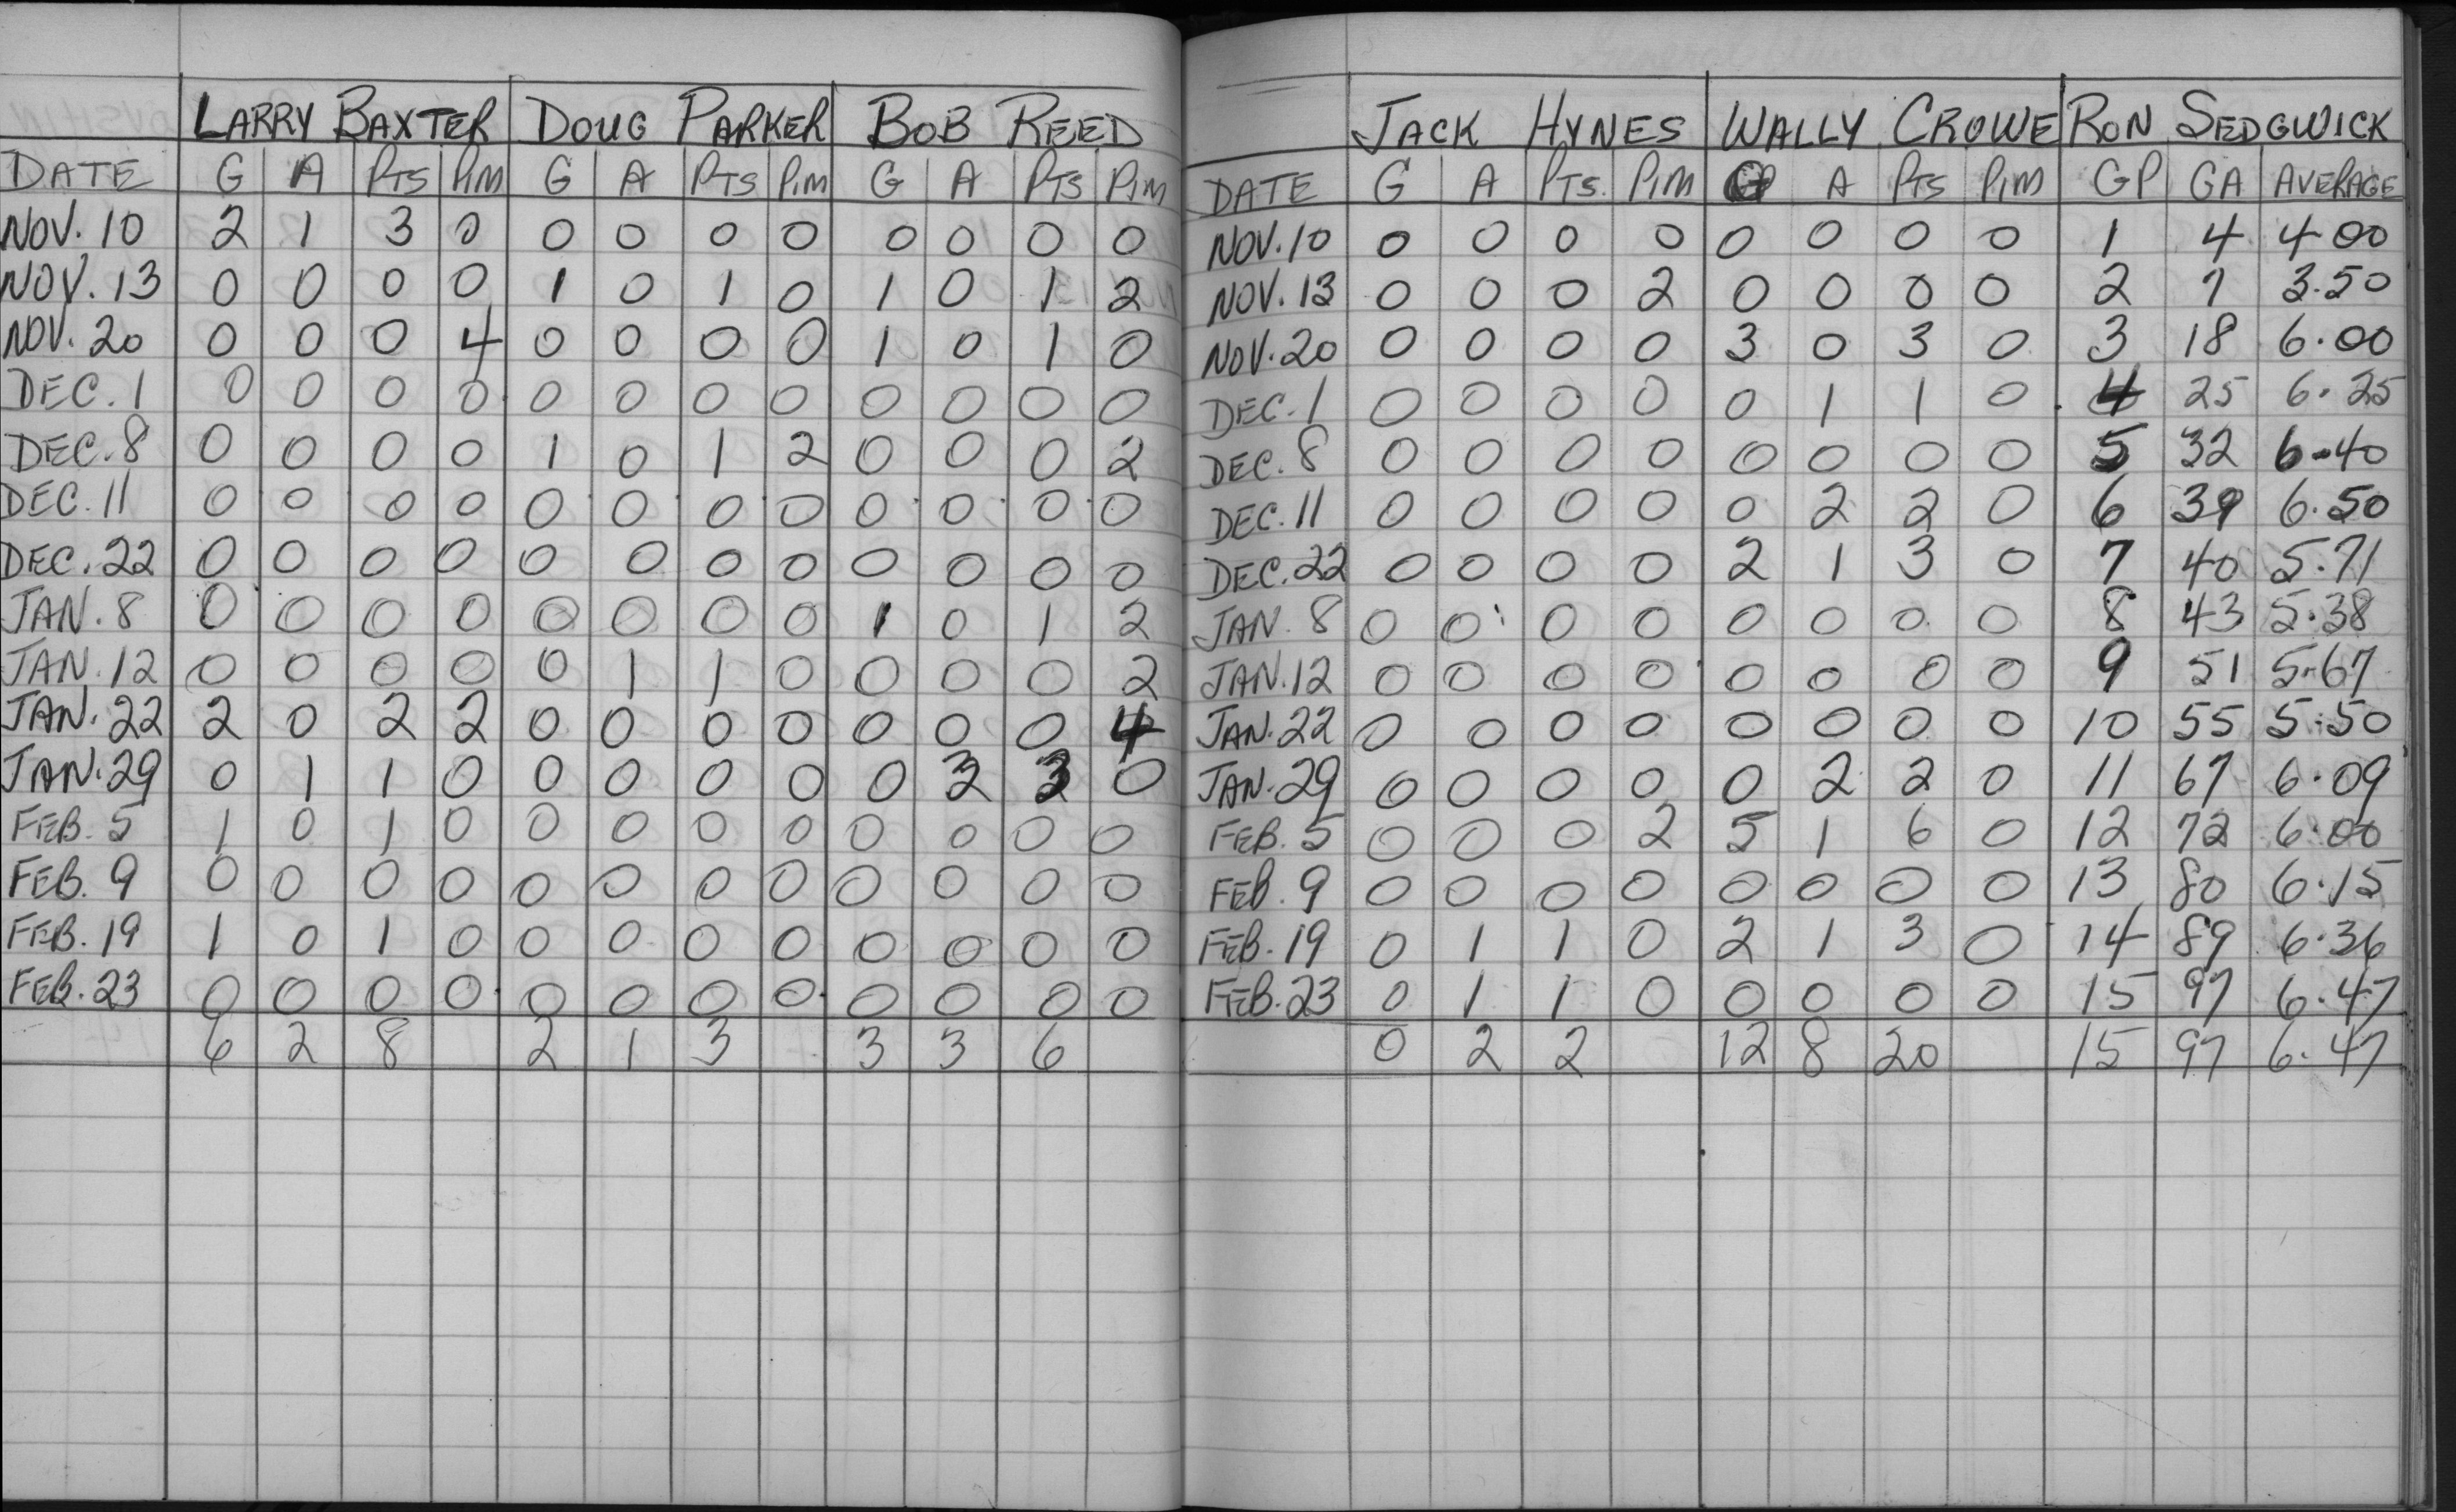 LARRY BAXTER DOUG PARKER BOB REED
DATE G A PTS PIM G A PTS PIM G A PTS PIM
NOV. 10 2 1 3 0 0 0 0 0 0 0 0 0
NOV. 13 0 0 0 0 1 0 1 0 1 0 1 2
NOV. 20 0 0 0 4 0 0 0 0 1 0 1 0
DEC. 1 0 0 0 0 0 0 0 0 0 0 0 0
DEC. 8 0 0 0 0 1 0 1 2 0 0 0 2
DEC. 11 0 0 0 0 0 0 0 0 0 0 0 0
DEC. 22 0 0 0 0 0 0 0 0 0 0 0 0
JAN. 8 0 0 0 0 0 0 0 0 1 0 1 2
JAN. 12 0 0 0 0 0 1 1 0 0 0 0 2
JAN. 22 2 0 2 2 0 0 0 0 0 0 0 4
JAN. 29 0 1 1 0 0 0 0 0 0 3 3 0
FEB. 5 1 0 1 0 0 0 0 0 0 0 0 0
FEB. 9 0 0 0 0 0 0 0 0 0 0 0 0
FEB. 19 1 0 1 0 0 0 0 0 0 0 0 0
FEB. 23 0 0 0 0 0 0 0 0 0 0 0 0
6 2 8 2 1 3 3 3 6
JACK HYNES WALLY CROWE RON SEDGWICK
DATE G A PTS. PIM G A PTS PIM GP GA AVERAGE
NOV. 10 0 0 0 0 0 0 0 0 1 4 4.00
NOV. 13 0 0 0 2 0 0 0 0 2 7 3.50
NOV. 20 0 0 0 0 3 0 3 0 3 18 6.00
DEC. 1 0 0 0 0 0 1 1 0 4 25 6.25
DEC. 8 0 0 0 0 0 0 0 0 5 32 6.40
DEC. 11 0 0 0 0 0 2 2 0 6 39 6.50
DEC. 22 0 0 0 0 2 1 3 0 7 40 5.71
JAN. 8 0 0 0 0 0 0 0 0 8 43 5.38
JAN. 12 0 0 0 0 0 0 0 0 9 51 5.67
JAN. 22 0 0 0 0 0 0 0 0 10 55 5.50
JAN. 29 0 0 0 0 0 2 2 0 11 67 6.09
FEB. 5 0 0 0 2 5 1 6 0 12 72 6.00
FEB. 9 0 0 0 0 0 0 0 0 13 80 6.15
FEB. 19 0 1 1 0 2 1 3 0 14 89 6.36
FEB. 23 0 1 1 0 0 0 0 0 15 97 6.47
0 2 2 12 8 20 15 97 6.47